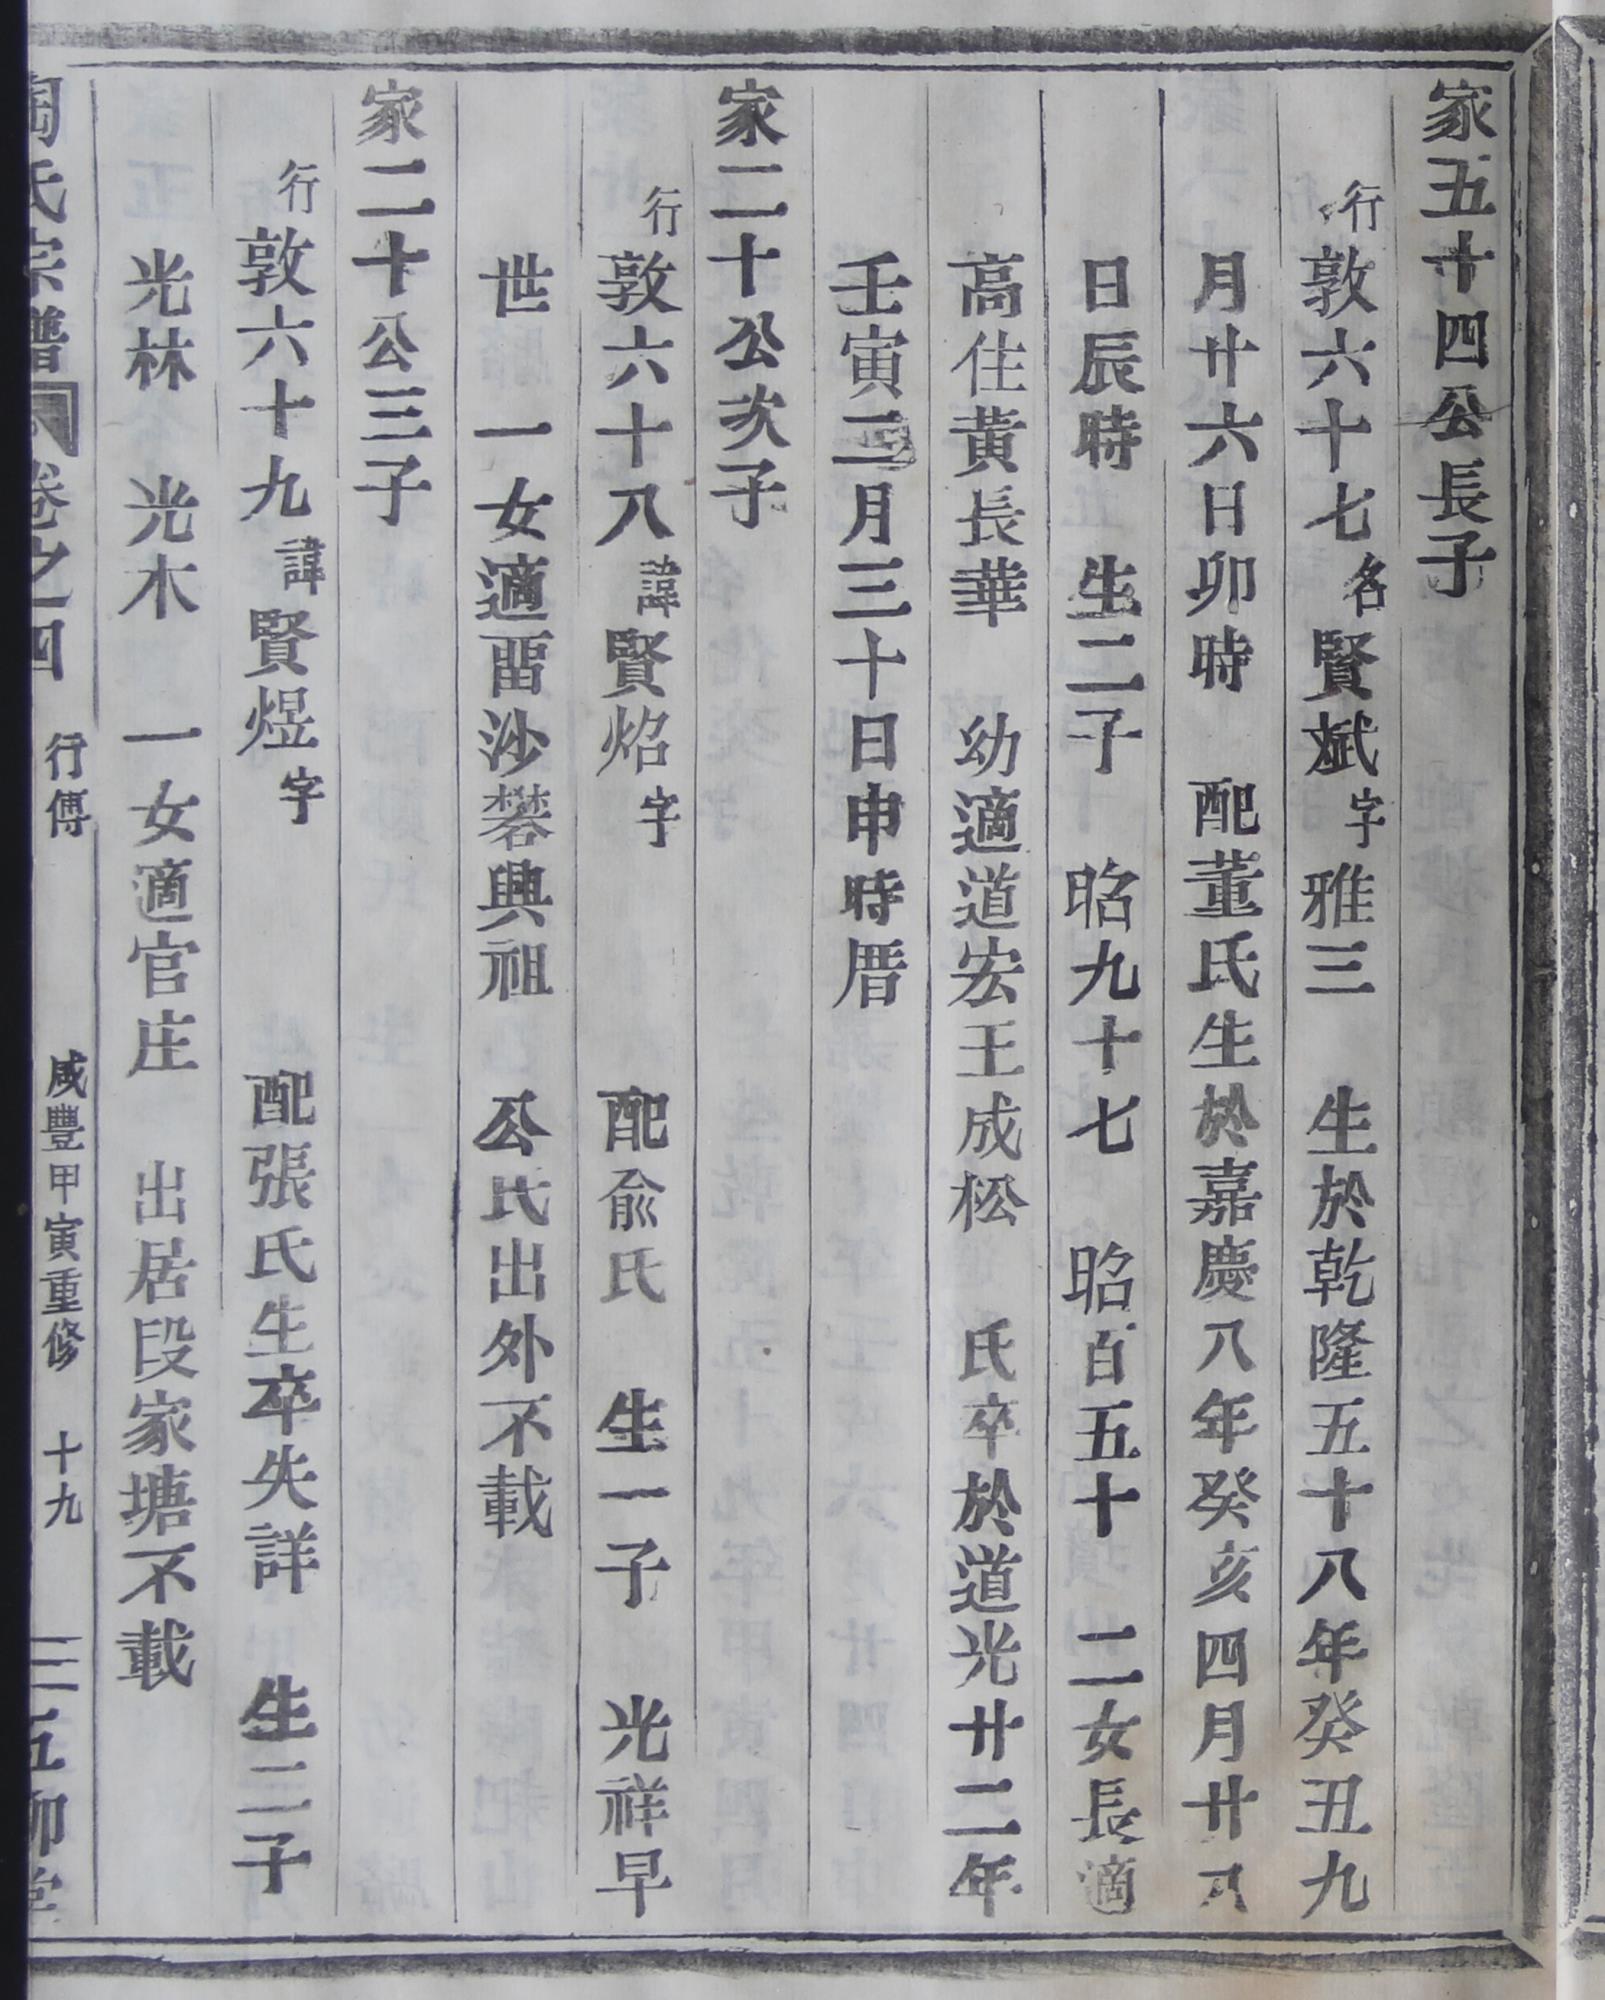 家五十四公長子
行敦六十七名賢斌字雅三 生於乾隆五十八年癸丑九
月廿六日卯時 配董氏生於嘉慶八年癸亥四月廿八
日辰時 生二子 昭九十七 昭百五十 二女長適
高住黃長華 幼適道宏王成松 氏卒於道光廿二年
壬寅二月三十日申時厝
家二十公次子
行敦六十八諱賢焰字 配俞氏 生一子 光祥早
世 一女適畱沙礬興祖 公氏出外不載
家二十公三子
行敦六十九諱賢煜字 配張氏生卒失詳 生二子
光林 光木 一女適官庄 出居段家塘不載
陶氏宗譜 卷之四 行傳 咸豐甲寅重修 十九 五柳堂